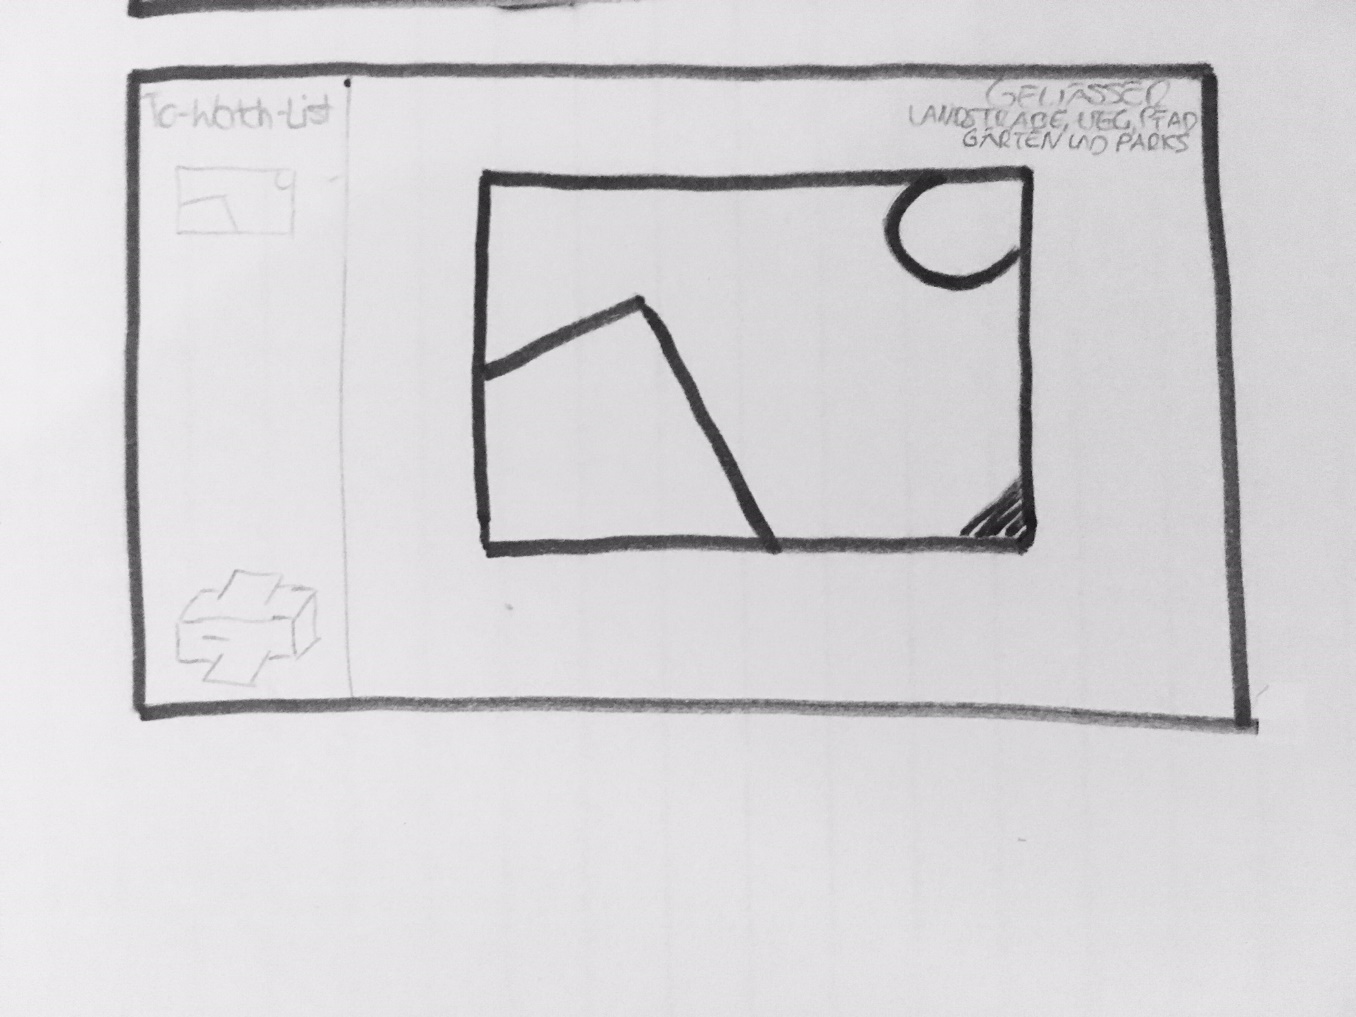 To-Watch-List
GEWÄSSER
LANDSTRAßE, WEG, PFAD
GÄRTEN UND PARKS